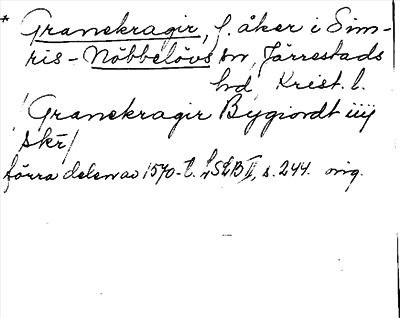 * Granekragir, f. åker i Sim-
ris-Nöbbelövs sn, Järrestads
hd, Krist. l.
/Granekragir Bygiordt iiij
skr̄/
förra delen av 1570-t. LSÆB II, s. 244. orig.